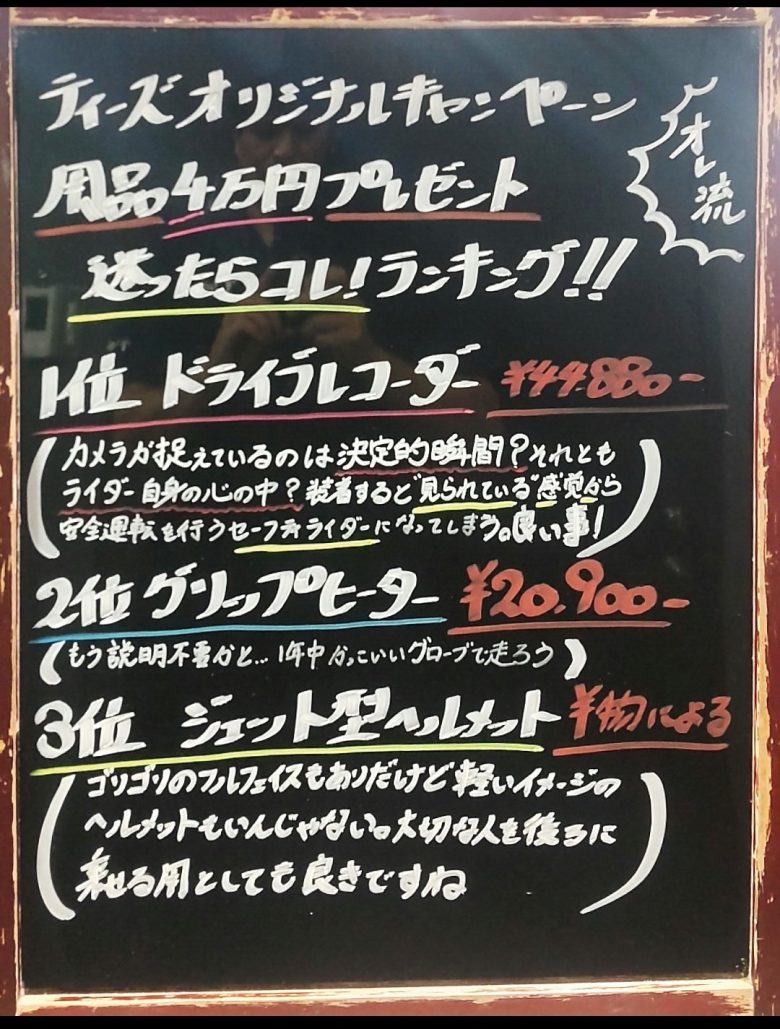 ティーズオリジナルキャンペーン
オレ流
用品4万円プレゼント
迷ったらコレ!ランキング!!
1位 ドライブレコーダー ¥44.880-
(カメラが捉えているのは決定的瞬間?それとも
ライダー自身の心の中?装着すると"見られている"感覚から
安全運転を行うセーフティライダーになってしまう。良い事!)
2位 グリップヒーター ¥20.900-
(もう説明不要かと…1年中かっこいいグローブで走ろう)
3位 ジェット型ヘルメット ¥物による
(ゴリゴリのフルフェイスもありだけど軽いイメージの
ヘルメットもいんじゃない。大切な人を後ろに
乗せる用としても良きですね)